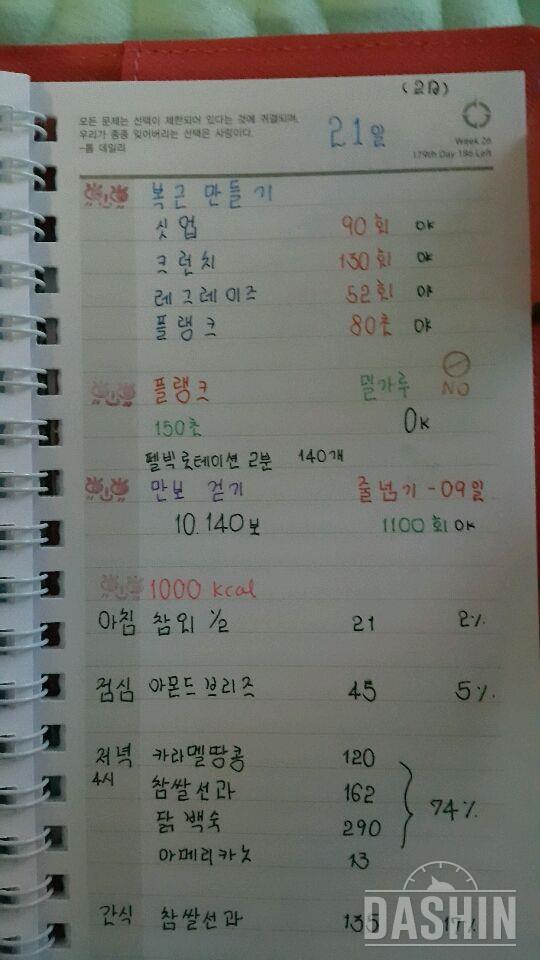 (2일)
모든 문제는 선택이 제한되어 있다는 것에 귀결되며,
우리가 종종 잊어버리는 선택은 사랑이다.
-톰 데일리
21일
Week 26
179th Day 186 Left
복근 만들기
싯업 90회 OK
크런치 130회 OK
레그레이즈 52회 OK
플랭크 80초 OK
플랭크 밀가루 NO
150초 OK
펠빅 롯테이션 2분 140개
만보 걷기 줄넘기 - 09일
10.140보 1100회 OK
1000 kcal
아침 참외 1/2 21 2%
점심 아몬드브리즈 45 5%
저녁 카라멜땅콩 120
4시 찹쌀선과 162
74%
닭백숙 290
아메리카노 13
간식 찹쌀선과 135 17%
DASHIN